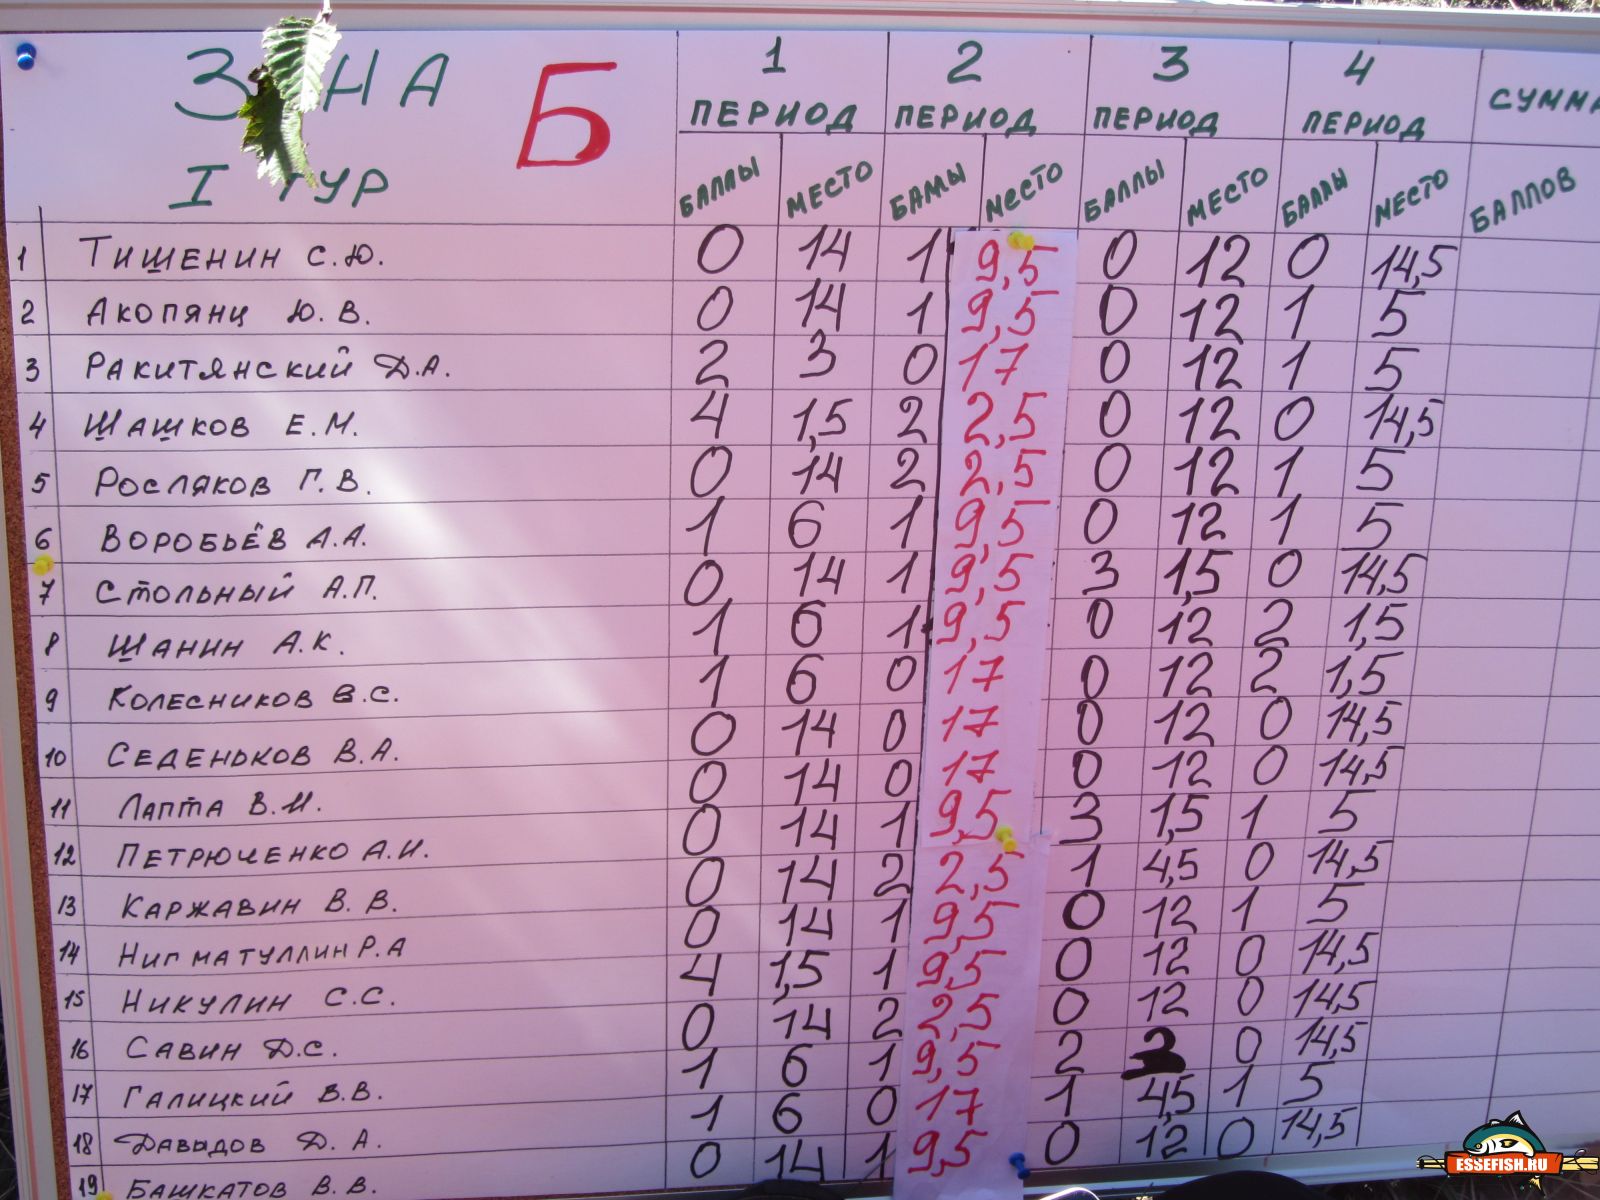 З НА Б
I ТУР
1 ПЕРИОД 2 ПЕРИОД 3 ПЕРИОД 4 ПЕРИОД СУММА
БАЛЛЫ МЕСТО БАЛЛЫ МЕСТО БАЛЛЫ МЕСТО БАЛЛЫ МЕСТО БАЛЛОВ
1 ТИШЕНИН С.Ю. 0 14 1 9,5 0 12 0 14,5
2 АКОПЯНЦ Ю.В. 0 14 1 9,5 0 12 1 5
3 РАКИТЯНСКИЙ Д.А. 2 3 0 17 0 12 1 5
4 ШАШКОВ Е.М. 4 1,5 2 2,5 0 12 0 14,5
5 РОСЛЯКОВ Г.В. 0 14 2 2,5 0 12 1 5
6 ВОРОБЬЁВ А.А. 1 6 1 9,5 0 12 1 5
7 СТОЛЬНЫЙ А.П. 0 14 1 9,5 3 1,5 0 14,5
8 ШАНИН А.К. 1 6 1 9,5 0 12 2 1,5
9 КОЛЕСНИКОВ В.С. 1 6 0 17 0 12 2 1,5
10 СЕДЕНЬКОВ В.А. 0 14 0 17 0 12 0 14,5
11 ЛАПТА В.И. 0 14 0 17 0 12 0 14,5
12 ПЕТРЮЧЕНКО А.И. 0 14 1 9,5 3 1,5 1 5
13 КАРЖАВИН В.В. 0 14 2 2,5 1 4,5 0 14,5
14 НИГМАТУЛЛИН Р.А 0 14 1 9,5 0 12 1 5
15 НИКУЛИН С.С. 4 1,5 1 9,5 0 12 0 14,5
16 САВИН Д.С. 0 14 2 2,5 0 12 0 14,5
17 ГАЛИЦКИЙ В.В. 1 6 1 9,5 2 3 0 14,5
18 ДАВЫДОВ Д.А. 1 6 0 17 1 4,5 1 5
19 БАШКАТОВ В.В. 0 14 1 9,5 0 12 0 14,5
ESSEFISH.RU